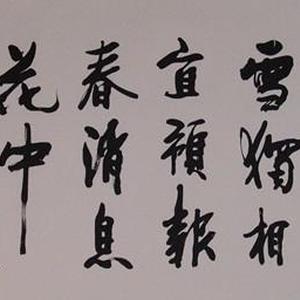 雪獨相
宜預報
春消息
花中